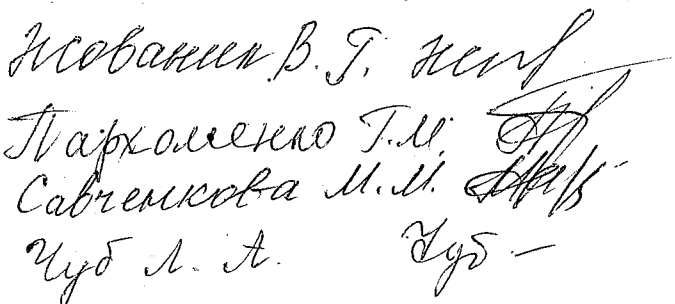 Жованик В. Г.
Пархоменко Г. М.
Савченкова М. М.
Чуб Л. А. Чуб